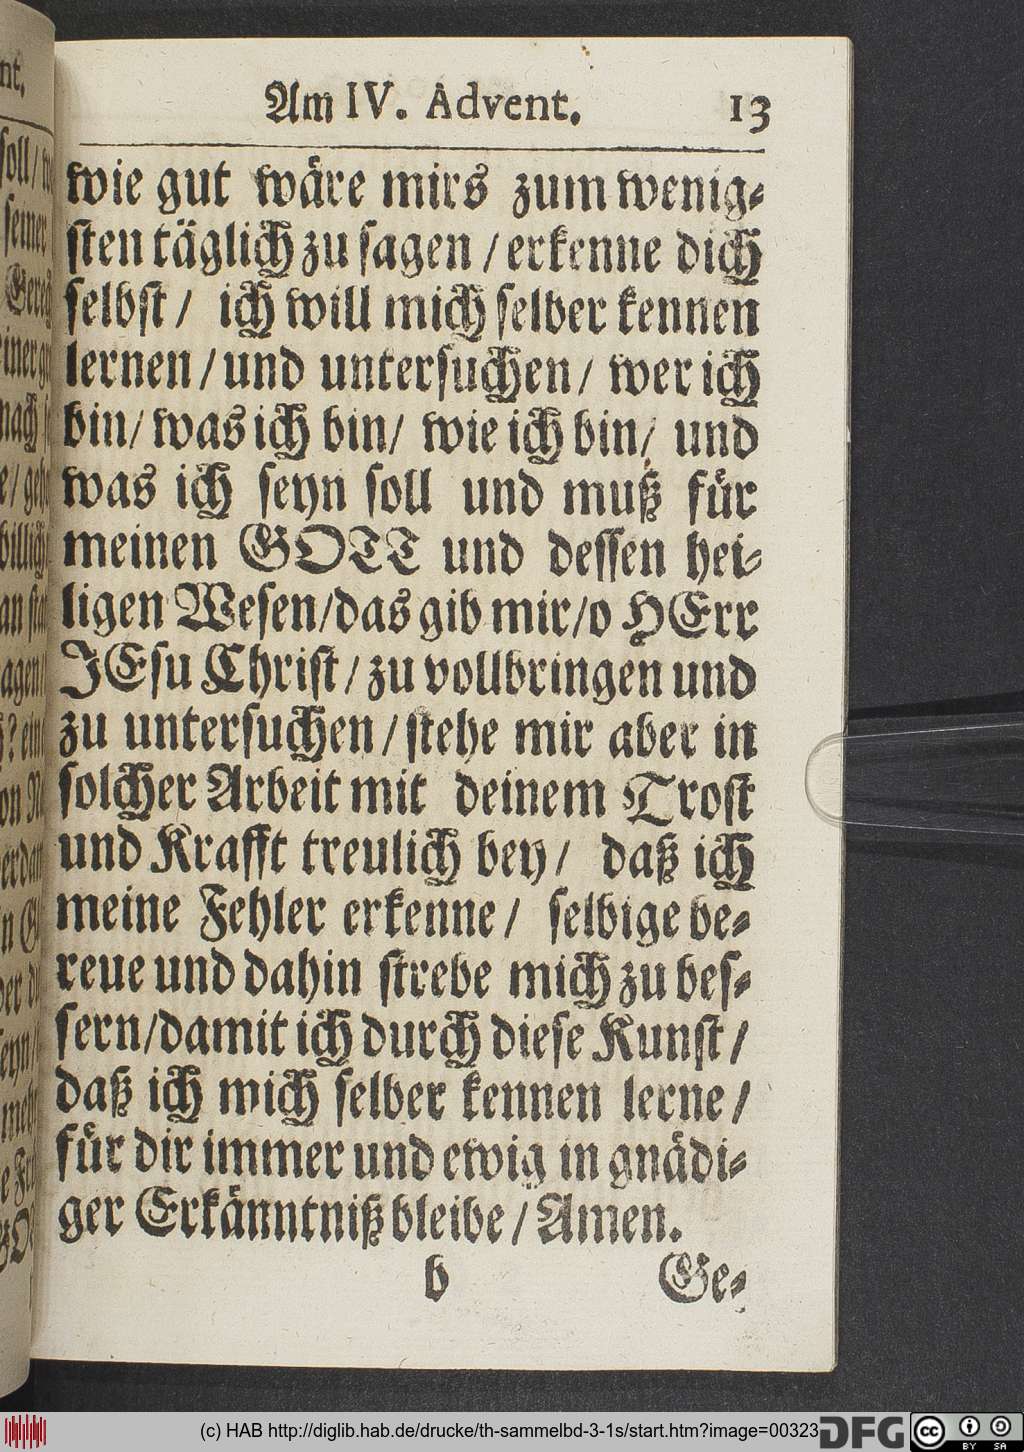 Am IV. Advent. 13
wie gut wäre mirs zum wenig-
sten täglich zu sagen / erkenne dich
selbst / ich will mich selber kennen
lernen / und untersuchen / wer ich
bin / was ich bin / wie ich bin / und
was ich seyn soll und muß für
meinen GOTT und dessen hei-
ligen Wesen / das gib mir / o HErr
JEsu Christ / zu vollbringen und
zu untersuchen / stehe mir aber in
solcher Arbeit mit deinem Trost
und Krafft treulich bey / daß ich
meine Fehler erkenne / selbige be-
reue und dahin strebe mich zu bes-
sern / damit ich durch diese Kunst /
daß ich mich selber kennen lerne /
für dir immer und ewig in gnädi-
ger Erkänntniß bleibe / Amen.
b Ge-
(c) HAB http://diglib.hab.de/drucke/th-sammelbd-3-1s/start.htm?image=00323
DFG
cc BY SA